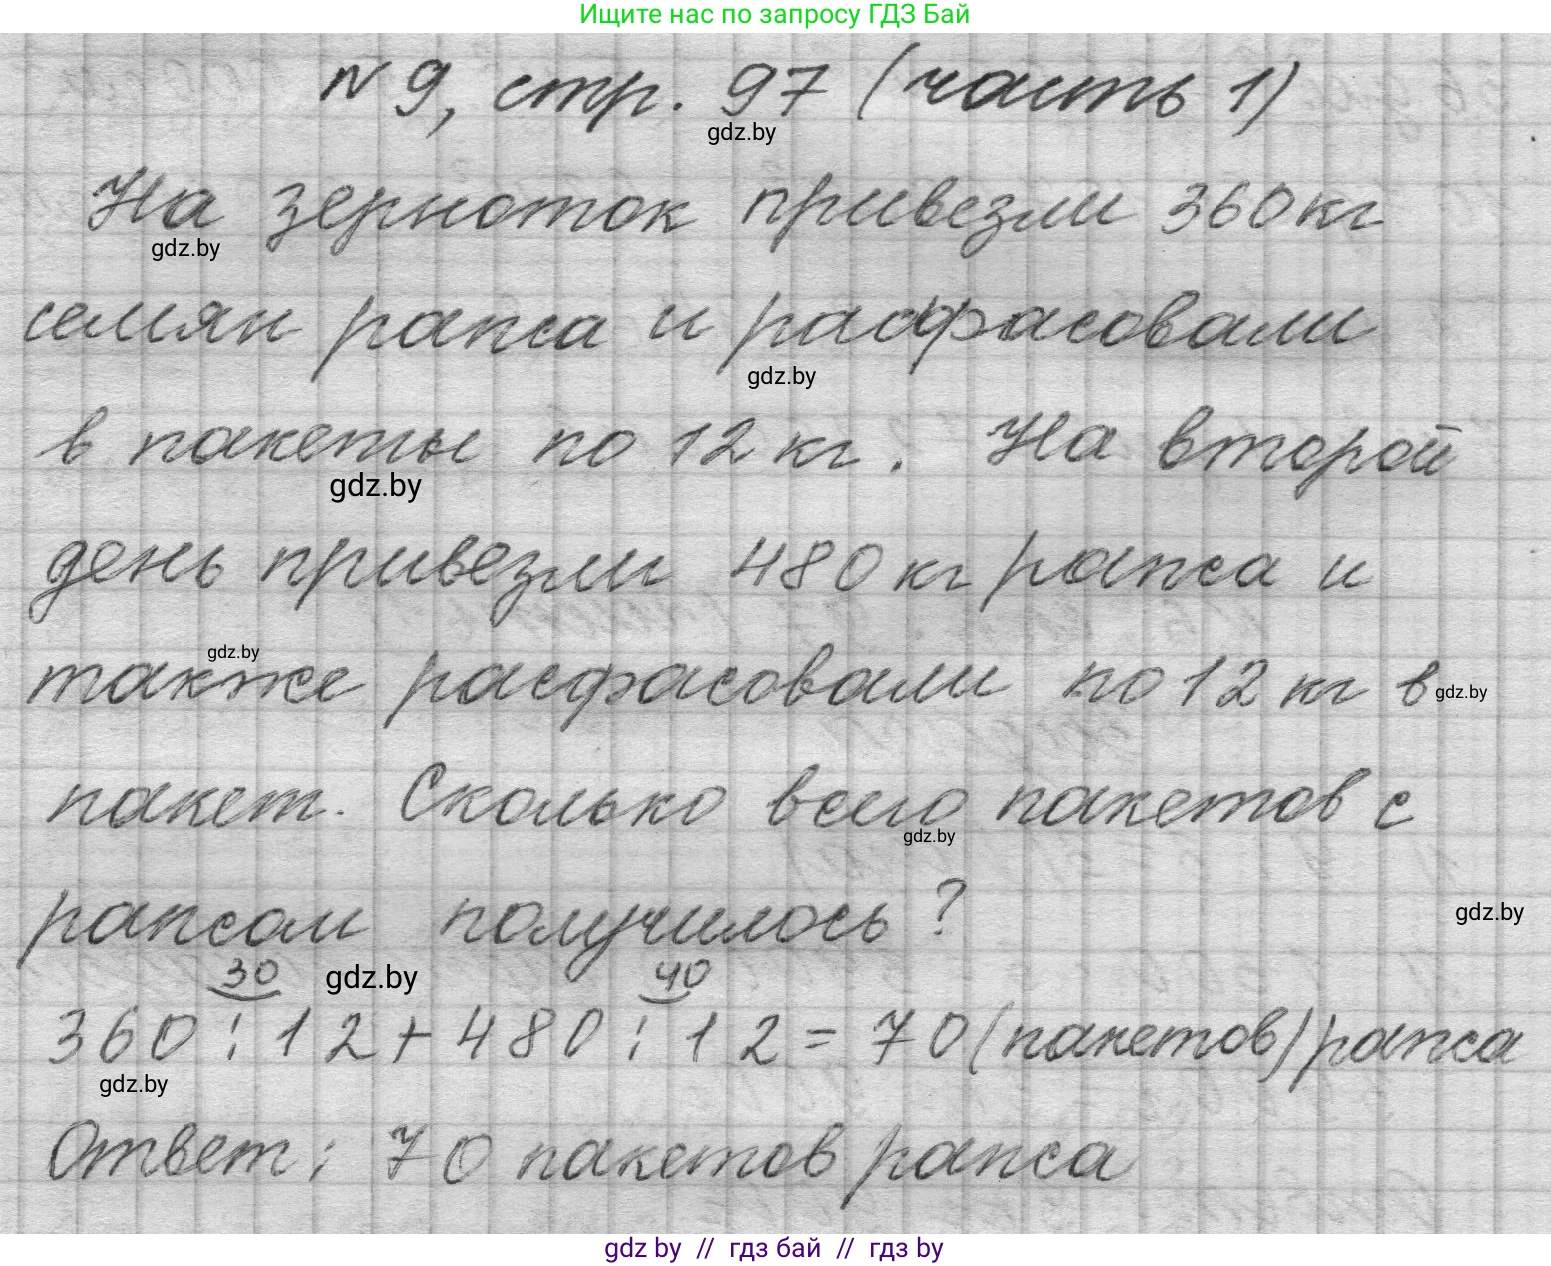 Ищите нас по запросу ГДЗ Бай
N 9, стр. 97 (часть 1)
gdz.by
На зерноток привезли 360 кг
gdz.by
семян рапса и расфасовали
gdz.by
в пакеты по 12 кг. На второй
gdz.by
день привезли 480 кг рапса и
gdz.by
также расфасовали по 12 кг в
gdz.by
пакет. Сколько всего пакетов с
gdz.by
рапсом получилось?
gdz.by
30 gdz.by 40
360 : 12 + 480 : 12 = 70 (пакетов) рапса
gdz.by
Ответ: 70 пакетов рапса
gdz by // гдз бай // гдз by